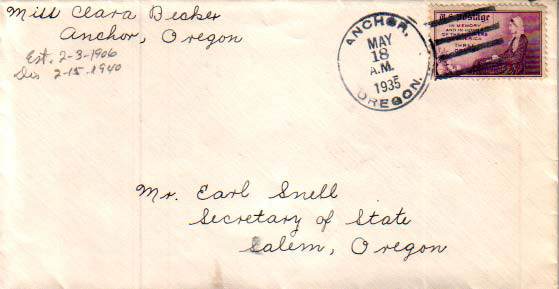 Miss Clara Becker
Anchor, Oregon
Est. 2-3-1906
Dis 2-15-1940
ANCHOR,
MAY
18
A.M.
1935
OREGON.
U.S. Postage
IN MEMORY
AND IN HONOR
OF THE MOTHERS
OF AMERICA
THREE
Mr. Earl Snell
Secretary of State
Salem, Oregon